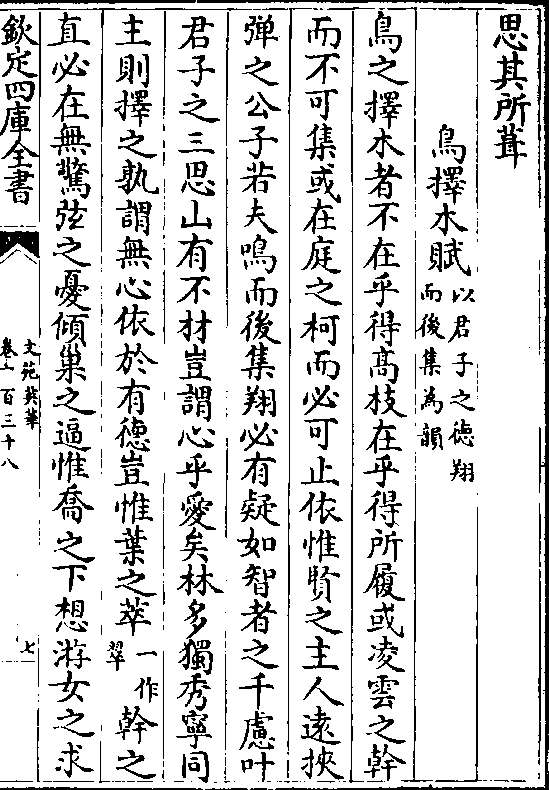 思其所葺
鳥擇木賦以君子之德翔
而後集為韻
鳥之擇木者不在乎得高枝在乎得所履或凌雲之幹
而不可集或在庭之柯而必可止依惟賢之主人遠挾
弹之公子若夫鳴而後集翔必有疑如智者之千慮叶
君子之三思山有不材豈謂心乎愛矣林多獨秀寧同
主則擇之孰謂無心依於有德豈惟葉之萃一作
翠幹之
直必在無驚弦之憂傾巢之逼惟喬之下想游女之求
欽定四庫全書
文苑英華
卷一百三十八
七